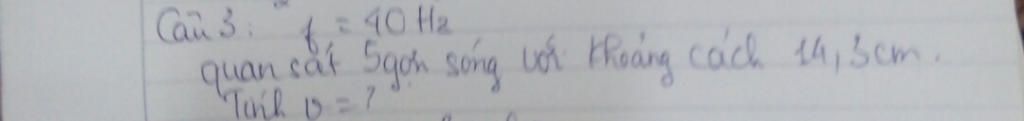 Câu 3: f = 40 Hz
quan sát 5 gợn sóng với khoảng cách 14,3 cm.
Tính v = ?